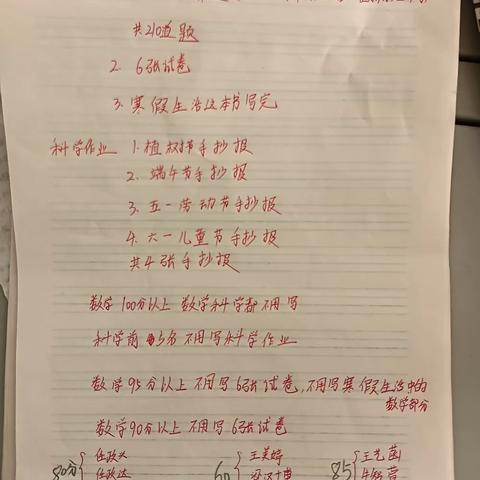 共210道题
2. 6张试卷
3. 寒假生活这本书写完
科学作业 1. 植树节手抄报
2. 端午节手抄报
3. 五一劳动节手抄报
4. 六一儿童节手抄报
共4张手抄报
数学100分以上 数学科学都不用写
科学前5名不用写科学作业
数学95分以上不用写6张试卷,不用写寒假生活中的
数学部分
数学90分以上不用写6张试卷
80分
60
王美婷
85